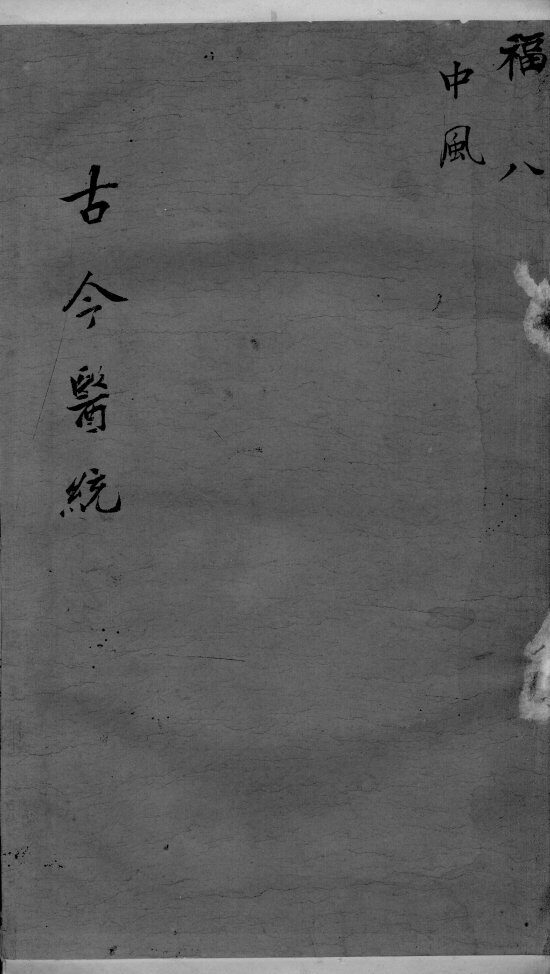 福八
中風
古今醫統